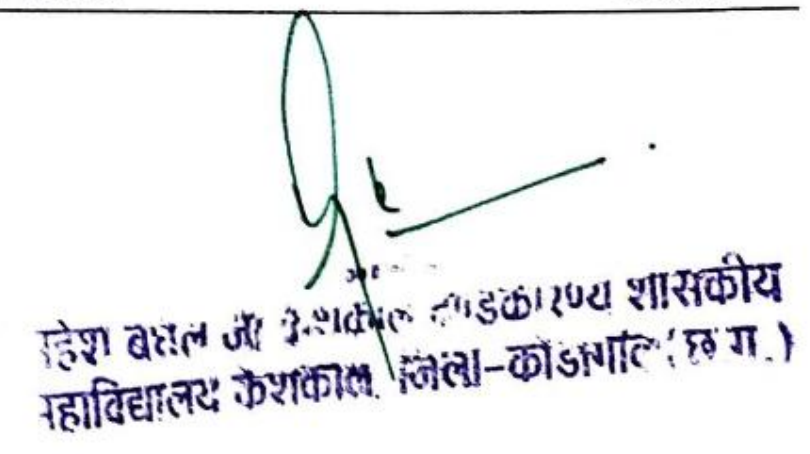 महेश बघेल जी केशकाल दण्डकारण्य शासकीय
महाविद्यालय केशकाल, जिला-कोंडागांव (छ.ग.)